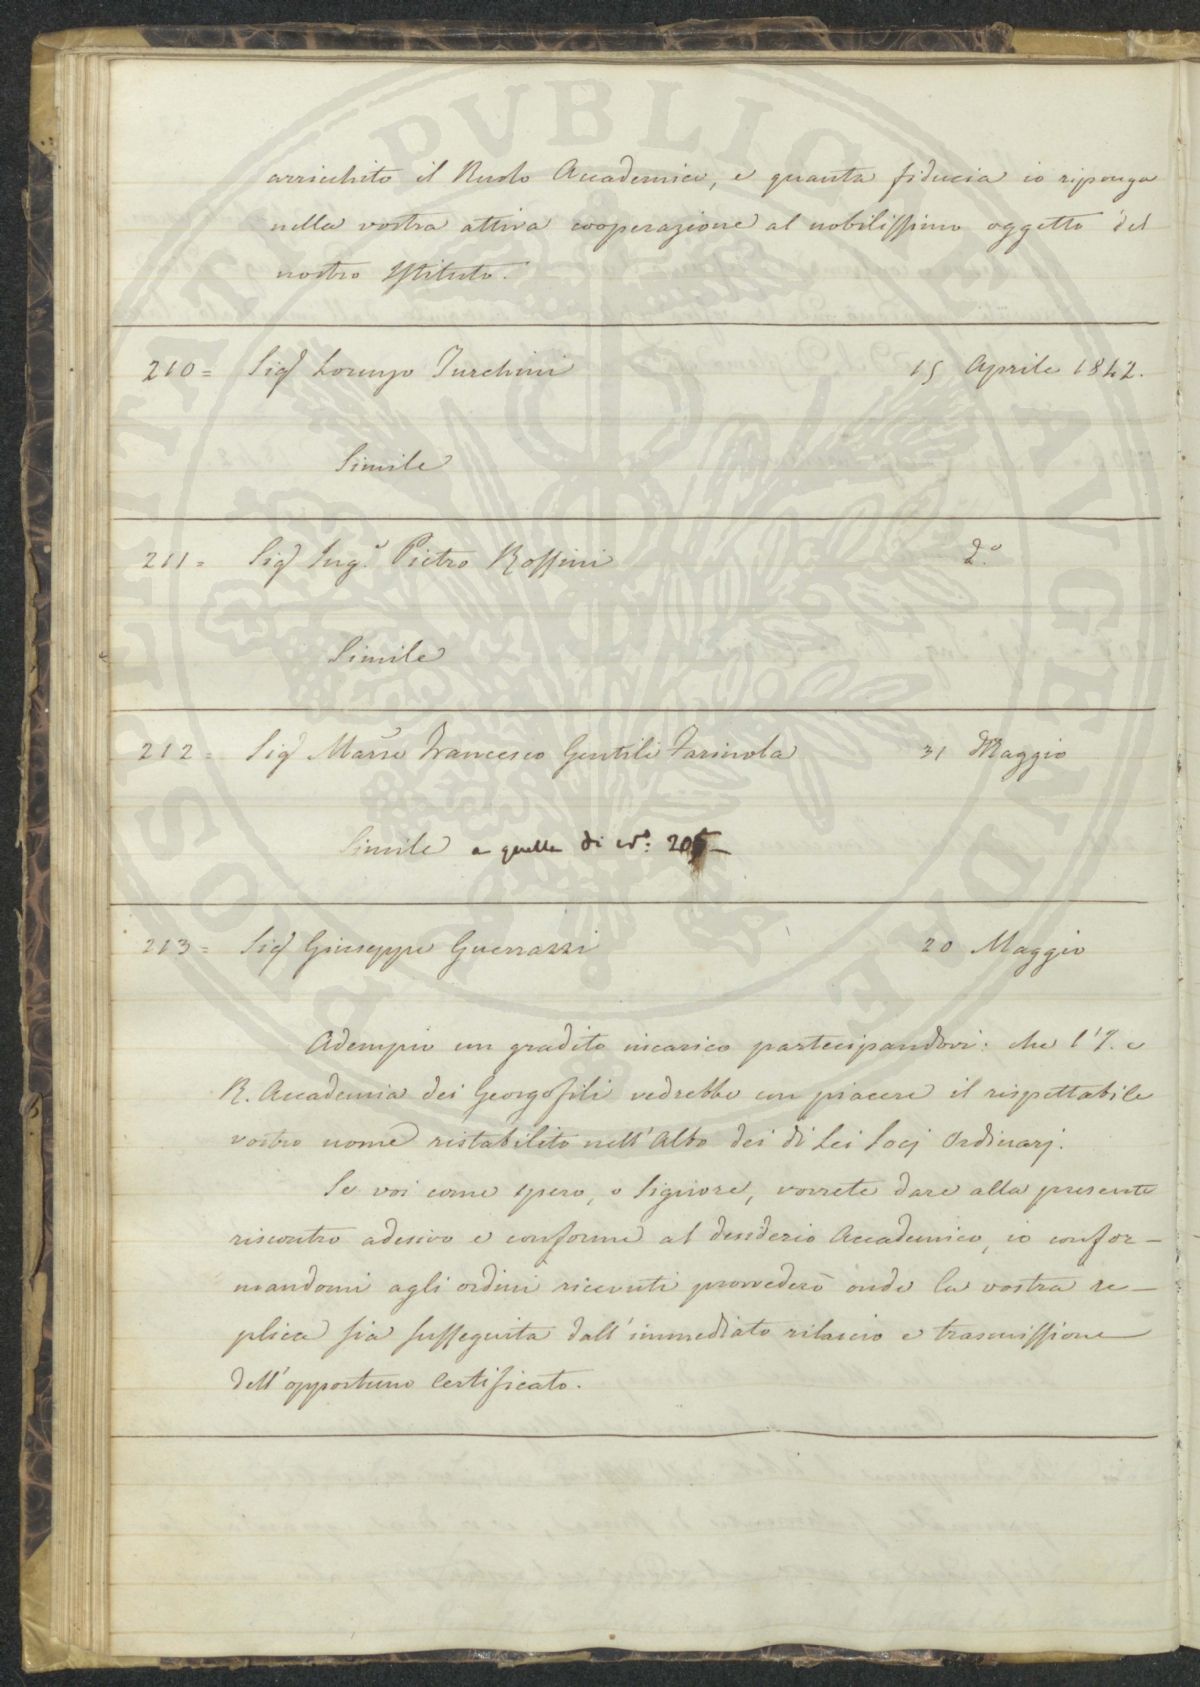 arricchito il Ruolo Accademico, e quanta fiducia io riponga
nella vostra attiva cooperazione al nobilissimo oggetto del
nostro Istituto.
210 = Sig.r Lorenzo Turchini 15 Aprile 1842.
Simile
211 = Sig.r Ing.e Pietro Rossini D.o
Simile
212 = Sig.r Marse Francesco Gentili Farinola 31 Maggio
Simile a quella di No: 205
213 = Sig.r Giuseppe Guerrazzi 20 Maggio
Adempio un gradito incarico partecipandovi: che l'I. e
R. Accademia dei Georgofili vedrebbe con piacere il rispettabile
vostro nome ristabilito nell'Albo dei di Lei Socj Ordinarj.
Se voi come spero, o Signore, vorrete dare alla presente
riscontro adesivo e conforme al desiderio Accademico, io confor-
mandomi agli ordini ricevuti provvederò onde la vostra re-
plica sia susseguita dall'immediato rilascio e trasmissione
dell'opportuno Certificato.